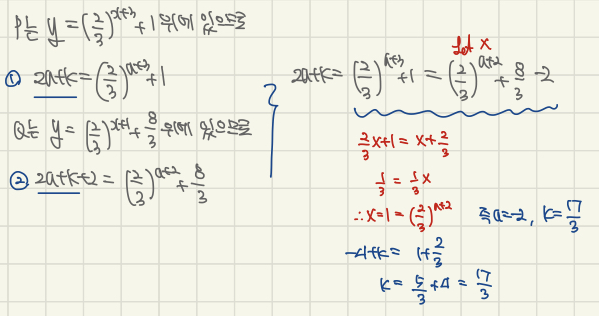 P는 y = (2/3)^(x+3) + 1 위에 있으므로
① 2a+k = (2/3)^(a+3) + 1
Q는 y = (2/3)^(x+1) + 8/3 위에 있으므로
② 2a+k+2 = (2/3)^(a+2) + 8/3
let X
2a+k = (2/3)^(a+3) + 1 = (2/3)^(a+2) + 8/3 - 2
2/3 X + 1 = X + 2/3
1/3 = 1/3 X
∴ X = 1 = (2/3)^(a+2)
즉 a = -2, k = 17/3
-4+k = 1 + 2/3
k = 5/3 + 4 = 17/3